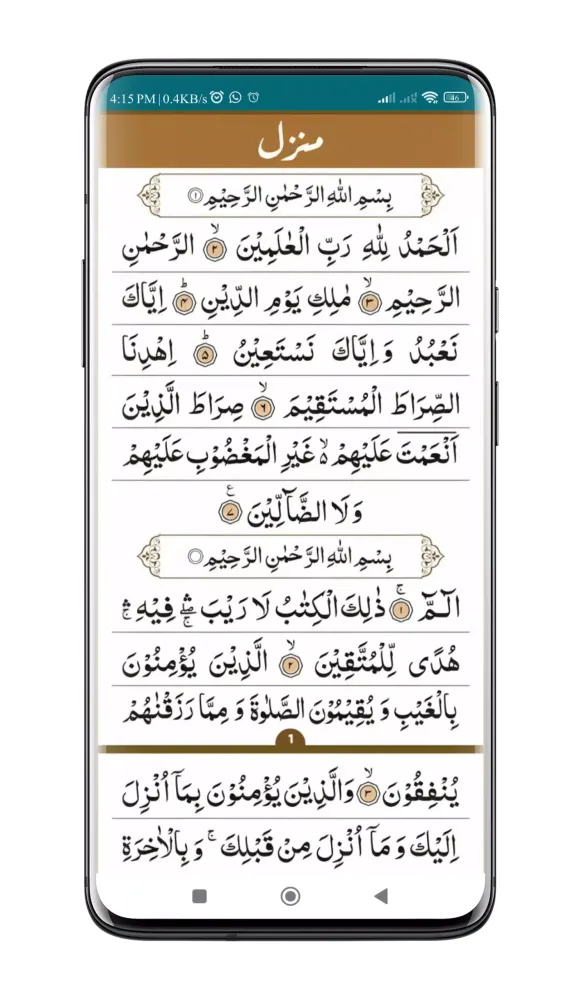 4:15 PM | 0.4KB/s 46
منزل
بِسْمِ اللّٰهِ الرَّحْمٰنِ الرَّحِيْمِ ۝۱
اَلْحَمْدُ لِلّٰهِ رَبِّ الْعٰلَمِيْنَ ۙ۝۲ الرَّحْمٰنِ
الرَّحِيْمِ ۙ۝۳ مٰلِكِ يَوْمِ الدِّيْنِ ؕ۝۴ اِيَّاكَ
نَعْبُدُ وَ اِيَّاكَ نَسْتَعِيْنُ ؕ۝۵ اِهْدِنَا
الصِّرَاطَ الْمُسْتَقِيْمَ ۙ۝۶ صِرَاطَ الَّذِيْنَ
اَنْعَمْتَ عَلَيْهِمْ ۙ۬ غَيْرِ الْمَغْضُوْبِ عَلَيْهِمْ
وَ لَا الضَّآلِّيْنَ ۝۷ ع
بِسْمِ اللّٰهِ الرَّحْمٰنِ الرَّحِيْمِ ۝
الٓمّٓ ۚ۝۱ ذٰلِكَ الْكِتٰبُ لَا رَيْبَ ۛۖۚ فِيْهِ ۛۚ
هُدًى لِّلْمُتَّقِيْنَ ۙ۝۲ الَّذِيْنَ يُؤْمِنُوْنَ
بِالْغَيْبِ وَ يُقِيْمُوْنَ الصَّلٰوةَ وَ مِمَّا رَزَقْنٰهُمْ
1
يُنْفِقُوْنَ ۙ۝۳ وَالَّذِيْنَ يُؤْمِنُوْنَ بِمَاۤ اُنْزِلَ
اِلَيْكَ وَ مَاۤ اُنْزِلَ مِنْ قَبْلِكَ ۚ وَ بِالْاٰخِرَةِ